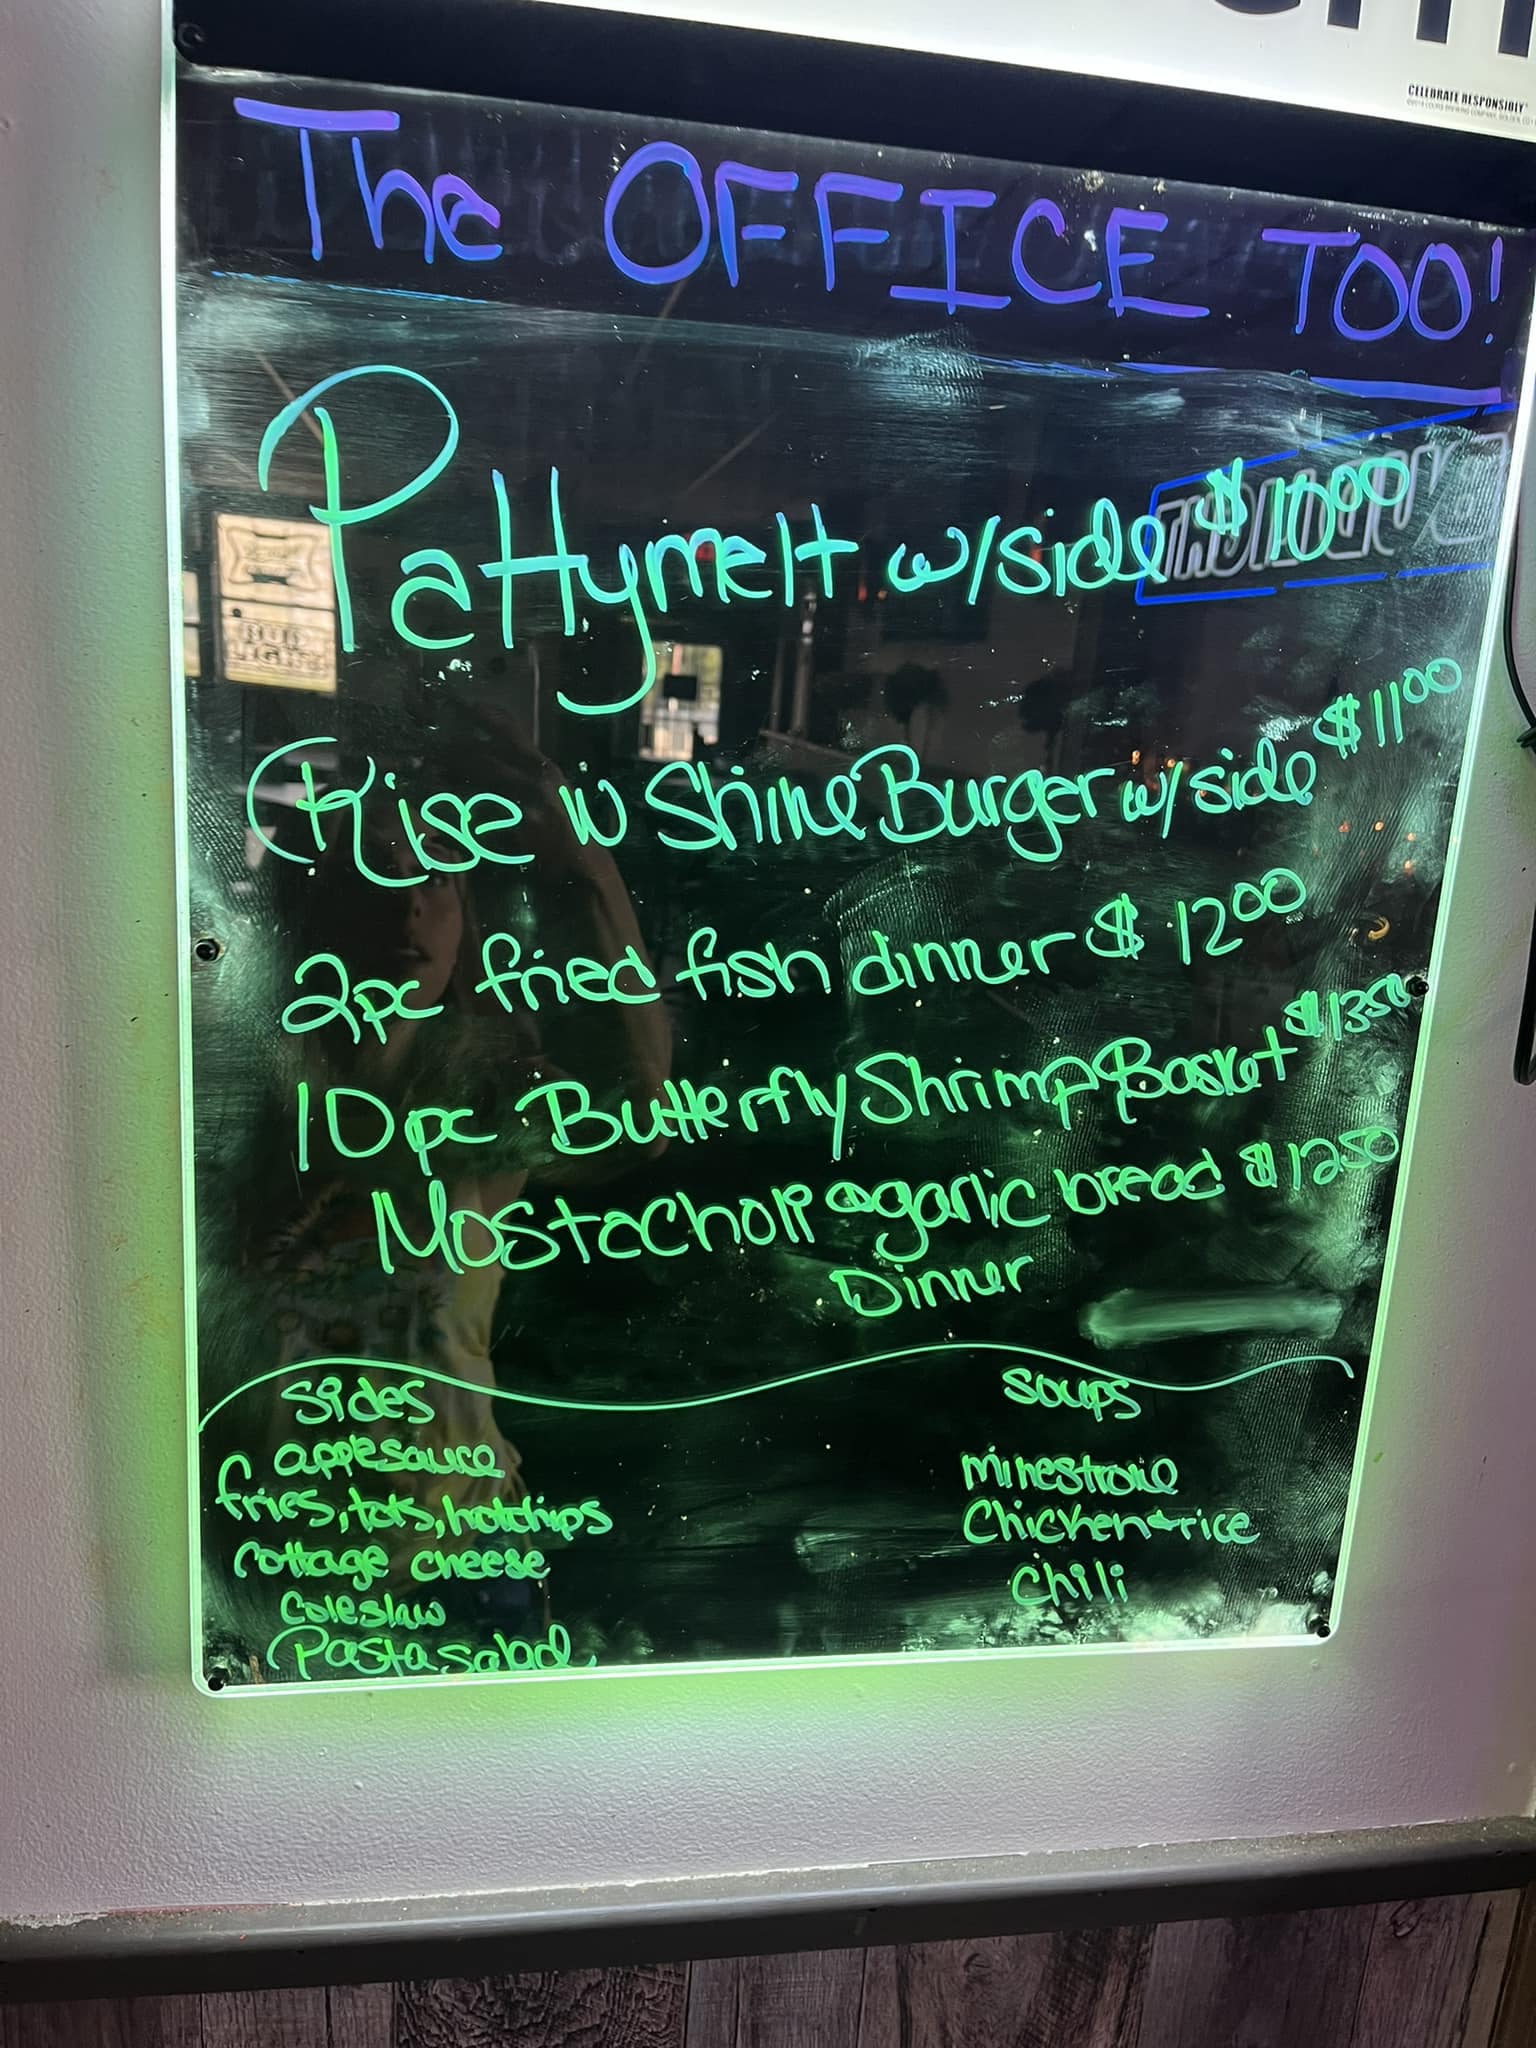 CELEBRATE RESPONSIBLY
The OFFICE TOO!
Pattymelt w/side $10.00
Rise N Shine Burger w/side $11.00
2pc fried fish dinner $12.00
10pc Butterfly Shrimp Basket $13.50
Mostacholi & garlic bread $12.50
Dinner
Sides
applesauce
fries, tots, hotchips
cottage cheese
coleslaw
Pasta salad
Soups
minestrone
Chicken & rice
Chili